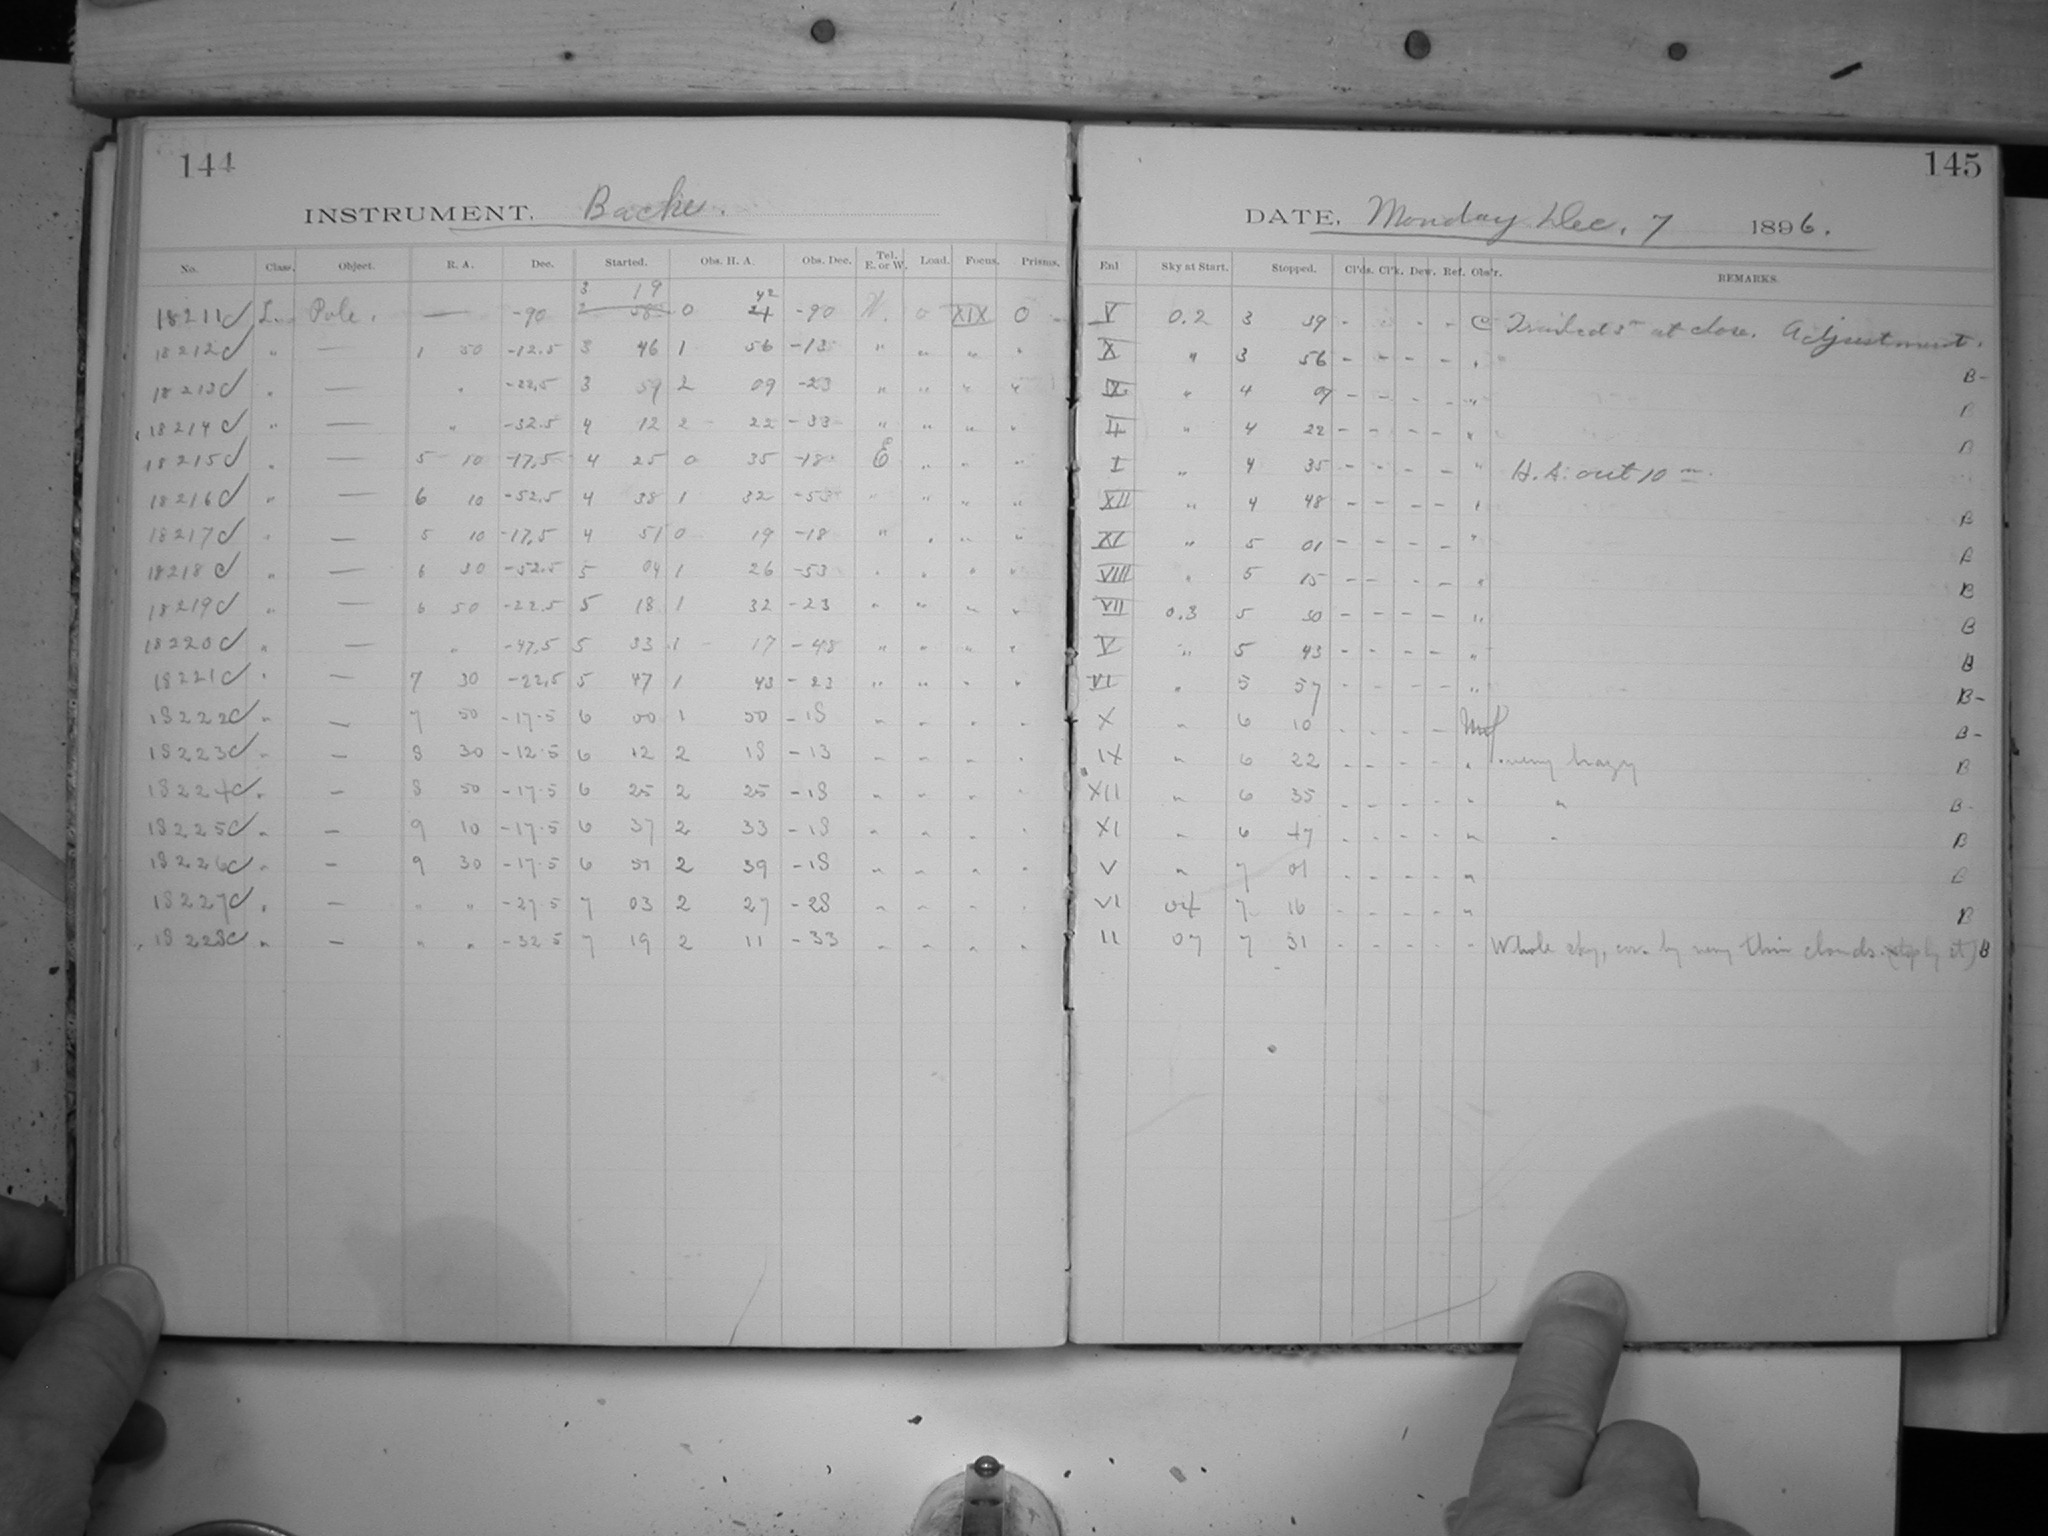 144
INSTRUMENT, Bache.
No. Class. Object. R. A. Dec. Started. Obs. H. A. Obs. Dec. Tel. E. or W. Load. Focus. Prisms.
3 19 42
18211 L. Pole. — -90 2 58 0 21 -90 W. 0 XIX 0
18212 " — 1 50 -12.5 3 46 1 56 -13 " " " "
18213 " — " -22.5 3 59 2 09 -23 " " " "
18214 " — " -32.5 4 12 2 22 -33 " " " "
18215 " — 5 10 -17.5 4 25 0 35 -18 E " " "
18216 " — 6 10 -52.5 4 38 1 32 -53 " " " "
18217 " — 5 10 -17.5 4 51 0 19 -18 " " " "
18218 " — 6 30 -52.5 5 04 1 26 -53 " " " "
18219 " — 6 50 -22.5 5 18 1 32 -23 " " " "
18220 " — " -47.5 5 33 1 17 -48 " " " "
18221 " — 7 30 -22.5 5 47 1 43 -23 " " " "
18222 " — 7 50 -17.5 6 00 1 50 -18 " " " "
18223 " — 8 30 -12.5 6 12 2 18 -13 " " " "
18224 " — 8 50 -17.5 6 25 2 25 -18 " " " "
18225 " — 9 10 -17.5 6 37 2 33 -18 " " " "
18226 " — 9 30 -17.5 6 51 2 39 -18 " " " "
18227 " — " " -27.5 7 03 2 27 -28 " " " "
18228 " — " " -32.5 7 19 2 11 -33 " " " "
145
DATE, Monday Dec. 7 1896.
Enl Sky at Start. Stopped. Cl'ds. Cl'k. Dew. Ref. Obs'r. REMARKS.
V 0.2 3 39 - - - C Trailed 5m at close. Adjustment.
X " 3 56 - - - - " B-
IX " 4 09 - - - - " B
II " 4 22 - - - - " B
I " 4 35 - - - - " H.A. out 10 m.
XII " 4 48 - - - - " B
XI " 5 01 - - - - " B
VIII " 5 15 - - - - " B
VII 0.3 5 30 - - - - " B
V " 5 43 - - - - " B
VI " 5 57 - - - - " B-
X " 6 10 - - - - B-
IX " 6 22 - - - - " very hazy B
XII " 6 35 - - - - " " B-
XI " 6 47 - - - - " " B
V " 7 01 - - - - " B
VI 04 7 16 - - - - " B
II 07 7 31 - - - - " Whole sky, cov. by very thin clouds. B